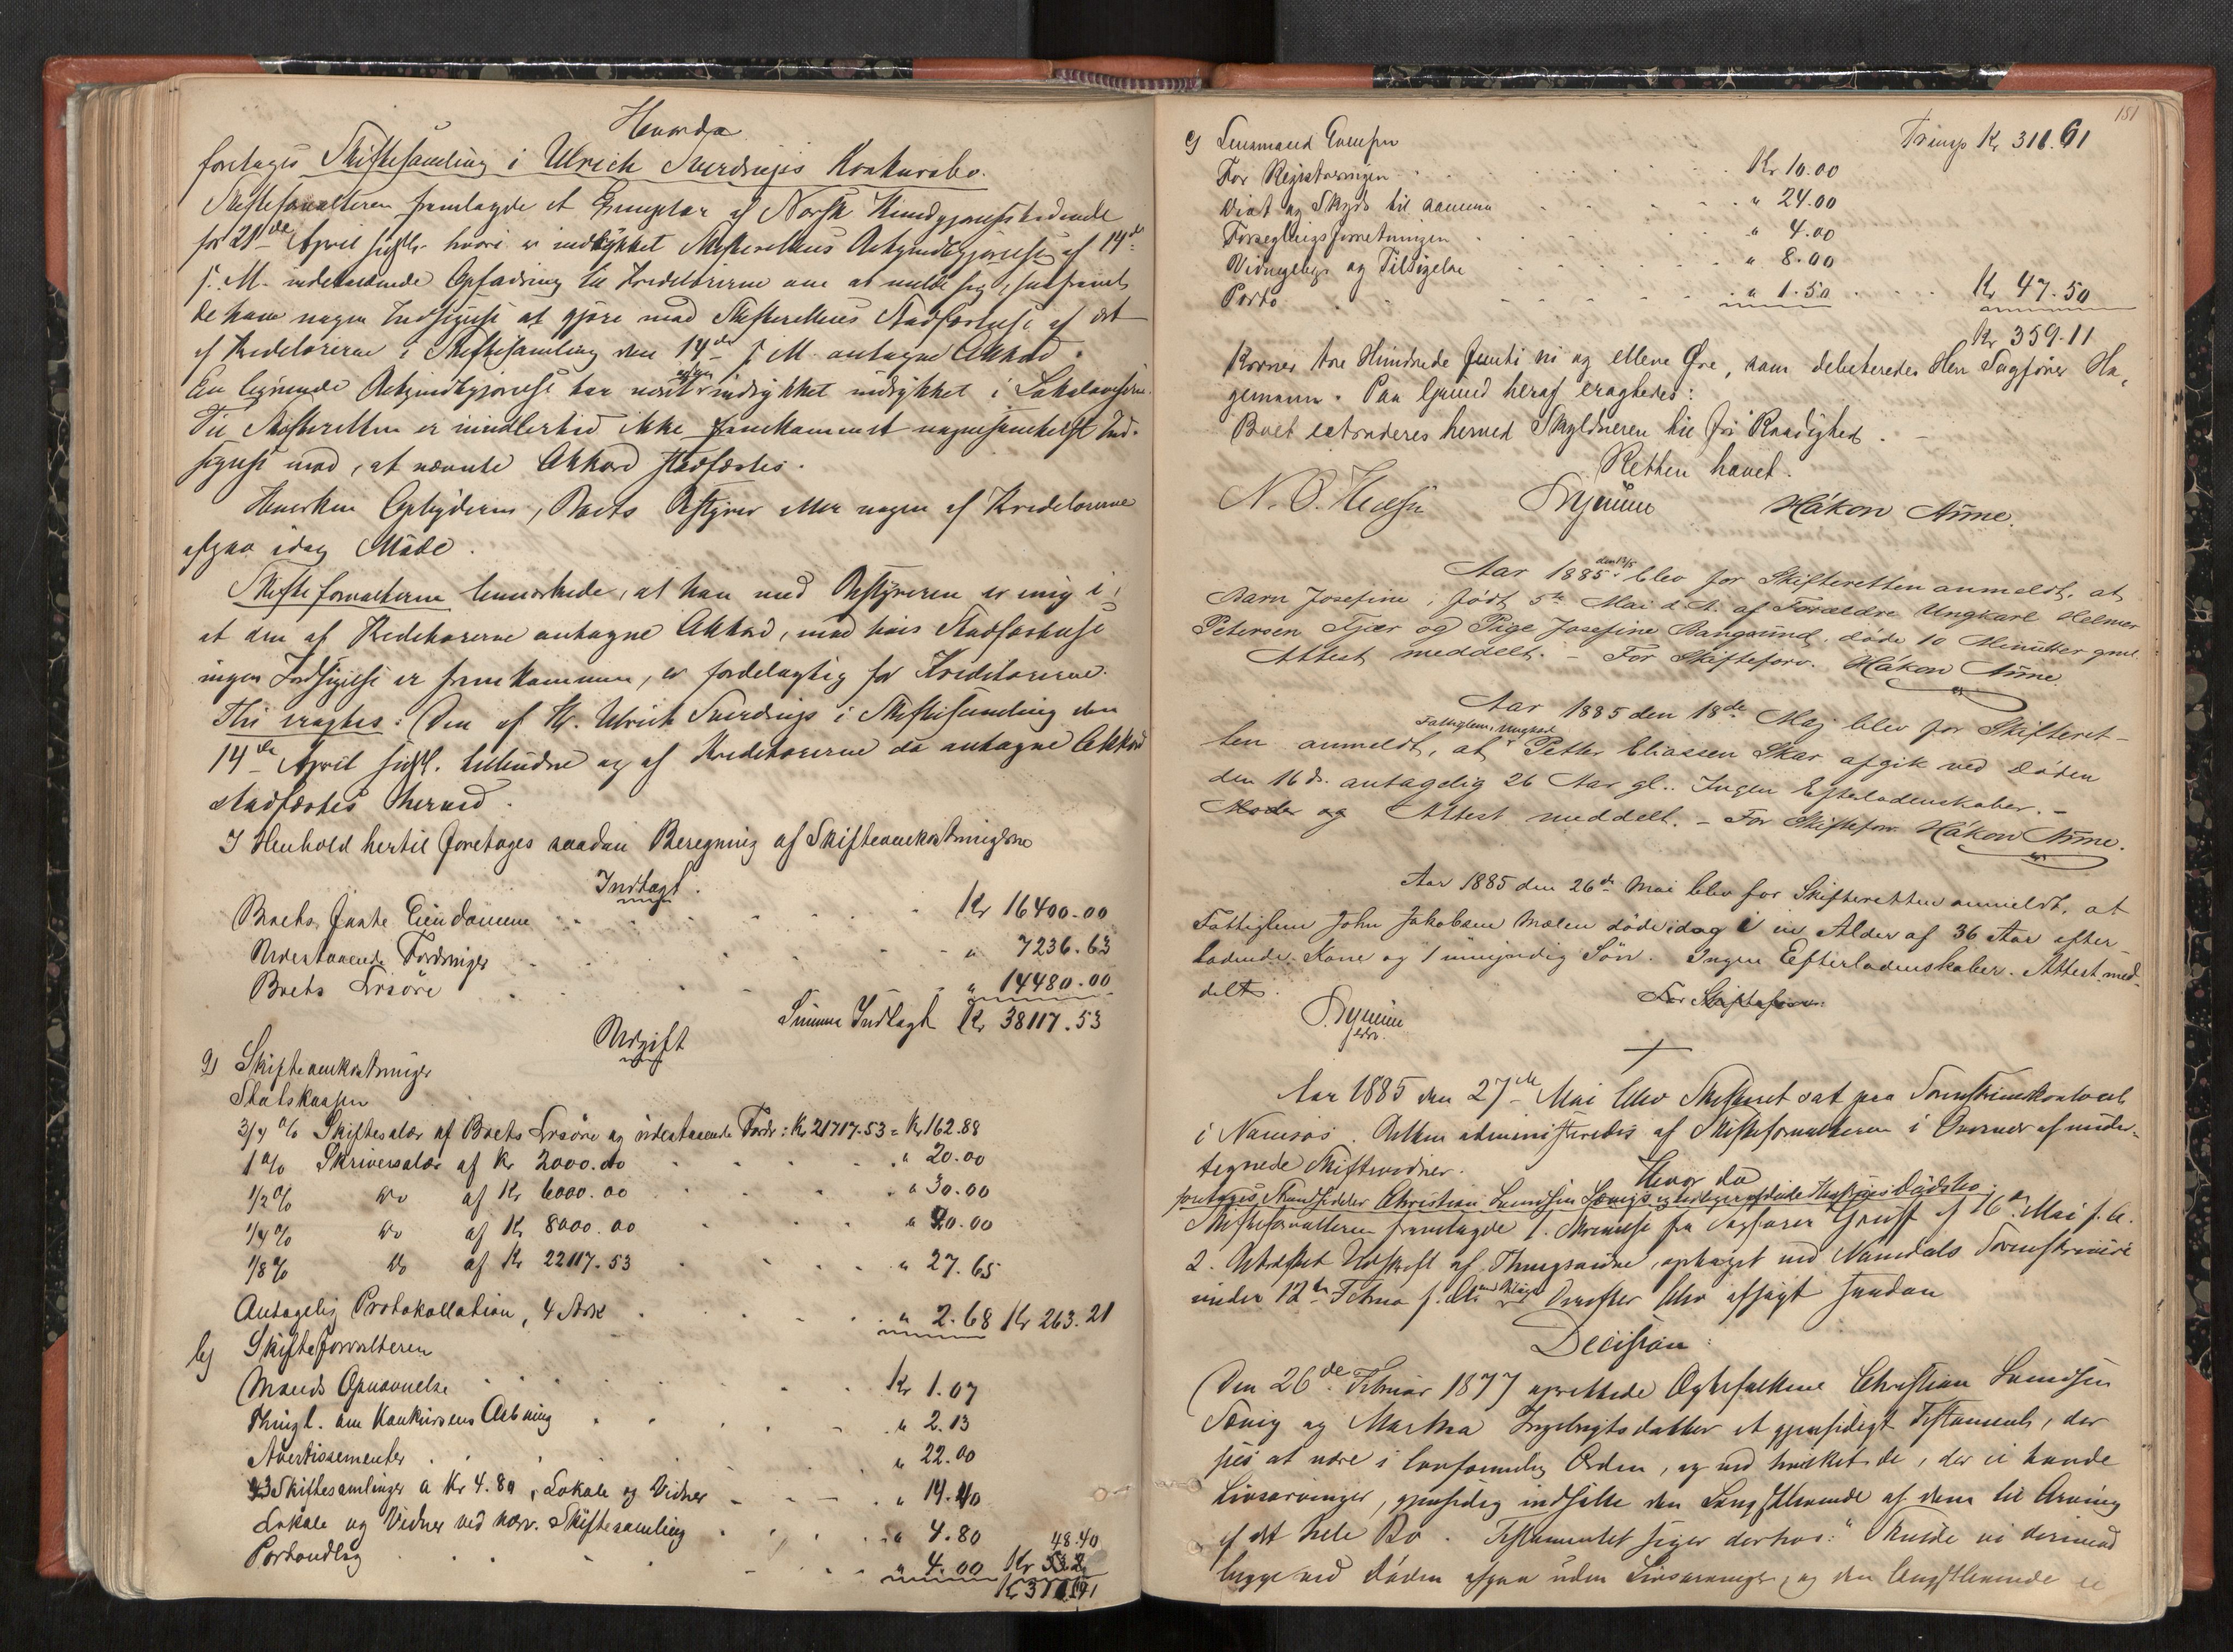 Hvorda
foretoges Skiftesamling i Ulrich Sverdrups Konkursbo.
Skifteforvalteren fremlagde et Exemplar af Norsk Kundgjørelsestidende
for 21de April sidstl. hvori er indrykket Skifterettens Bekjendtgjørelse af 14de
s. M. indeholdende Opfodring til Kreditorerne om at melde sig, saafremt
de have nogen Indsigelse at gjøre mod Skifterettens Stadfæstelse af det
af Kreditorerne i Skiftesamling den 14de s. M. antagne Akkord.
En lignende Bekjendtgjørelse har været indrykket indrykket i Lokalavisen.
Til Skifteretten er imidlertid ikke fremkommet nogensomhelst Ind-
sigelse mod, at nævnte Akkord stadfæstes.
Hverken Opbyderen, Boets Bestyrer eller nogen af Kreditorerne
afgav idag Møde.
Skifteforvalteren bemærkede, at han med Bestyreren er enig i,
at den af Kreditorerne antagne Akkord, mod hvis Stadfæstelse
ingen Indsigelse er fremkommen, er fordelagtig for Kreditorerne.
Thi eragtes: Den af Hr. Ulrich Sverdrup i Skiftesamling den
14de April sidstl. tilbudne og af Kreditorerne da antagne Akkord
stadfæstes herved.
I Henhold hertil foretages saadan Beregning af Skifteomkostningerne
Indtægt.
Boets faste Eiendomme Kr 16400.00
Udestaaende Fordringer " 7236.63
Boets Løsøre " 14480.00
Summa Indtægt Kr 38117.53
Udgift
a) Skifteomkostninger
Statskassen
3/4 % Skiftesalær af Boets Løsøre og udestaaende Fordr: Kr 21717.53 = Kr 162.88
1 % Skriversalær af Kr 2000.00 " 20.00
1/2 % Do af Kr 6000.00 " 30.00
1/4 % Do af Kr 8000.00 " 20.00
1/8 % Do af Kr 22117.53 " 27.65
Antagelig Protokollation, 4 Ark " 2.68 Kr 263.21
b) Skifteforvalteren
Mænds Opnævnelse Kr 1.07
Thingl. om Konkursens Aabning " 2.13
Avertissementer " 22.00
3 Skiftesamlinger a Kr 4.80, Lokale og Vidner " 14.40
Lokale og Vidner ved nærv. Skiftesamling " 4.80
48.40
Portoudlæg " 4.00 Kr
181
Transp Kr 311.61
c) Lensmand Evensen
For Registreringen Kr 10.00
Diæt og Skyds til samme " 24.00
Forseglingsforretningen " 4.00
Vidnegebyr og Tilsigelse " 8.00
Porto " 1.50 Kr 47.50
Kr 359.11
Kroner tre Hundrede femti ni og elleve Øre, som debiteredes Herr Sagfører Ha-
gemann. Paa Grund heraf eragtedes:
Boet extraderes herved Skyldneren til fri Raadighed.
Retten hævet.
Håkon Aune.
Aar 1885 den 12/5 blev for Skifteretten anmeldt, at
Barn Josefine, født 5te Mai d. A. af Forældre Ungkarl Helmer
Petersen Tjær og Pige Josefine Bangsund, døde 10 Minutter gml.
Attest meddelt. – For Skifteforv. Håkon Aune.
Aar 1885 den 18de Maj blev for Skifteret-
Fattiglem, Ungkarl
ten anmeldt, at Petter Eliassen Skar afgik ved Døden
den 16 ds. antagelig 26 Aar gl.. Ingen Efterladenskaber. –
Moder og Attest meddelt. – For Skifteforv. Håkon Aune.
Aar 1885 den 26de Mai blev for Skifteretten anmeldt, at
Fattiglem John Jakobsen Mælen døde idag i en Alder af 36 Aar efter-
ladende Kone og 1 umyndig Søn. Ingen Efterladenskaber. Attest med-
delt.
For Skifteforv.
Aar 1885 den 27de Mai blev Skifteret sat paa Sorenskriverkontoret
i Namsos. Retten administreredes af Skifteforvalteren i Overvær af under-
tegnede Skiftevidner.
Hvor da
foretoges
Skifteforvalteren fremlagde 1. Skrivelse fra Sagfører af 16de Mai s. A.
2. Udskrift af Thingsvidne, optaget ved Namdals Sorenskriveri
under 12te Februar s. A. Derefter blev afsagt saadan
Decision:
Den 26de Februar 1877 oprettede Ægtefolkene Christian Lundsen
Sønig og Martha Ingebrigtsdatter et gjensidigt Testamente, der
sees at være i lovformelig Orden, og ved hvilket de, der ei havde
Livsarvinger, gjensidig indsatte den Længstlevende af dem til Arving
af det hele Bo. Testamentet siger derhos: "Skulde vi derimod
begge ved Døden afgaa uden Livsarvinger, og den Længstlevende ei